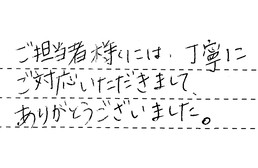 ご担当者様には、丁寧に
ご対応いただきまして、
ありがとうございました。